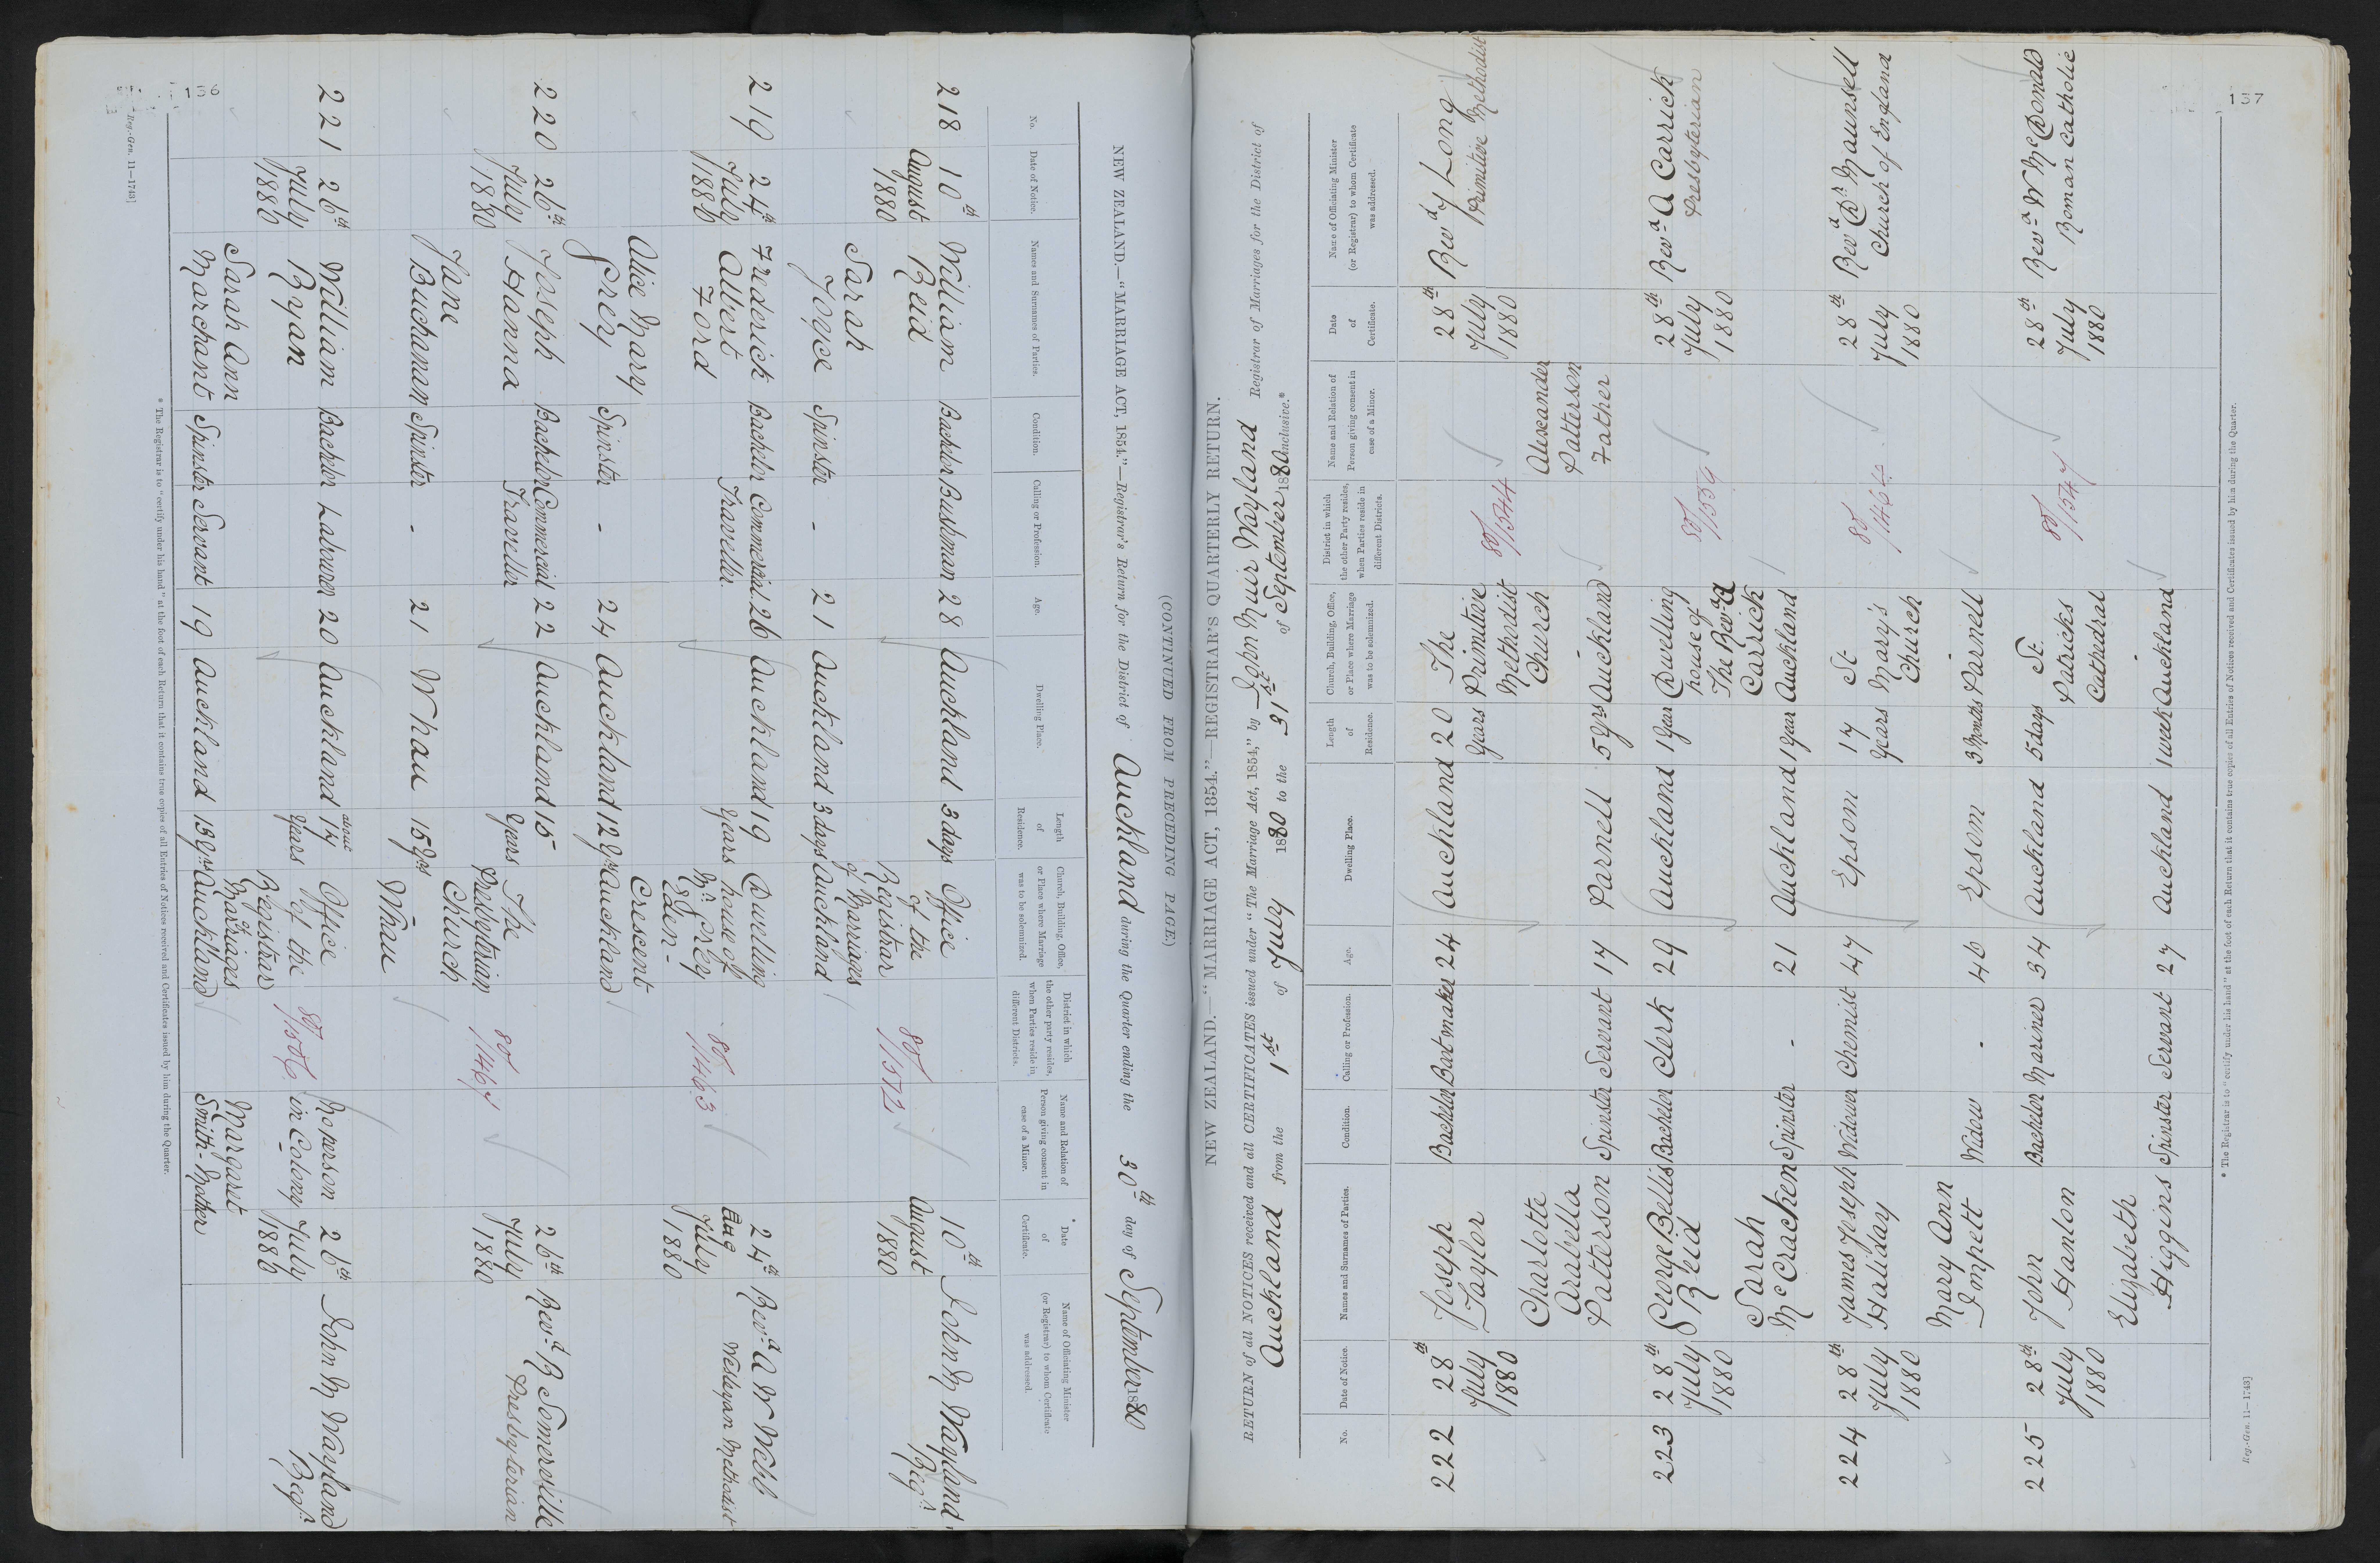 136
NEW ZEALAND.—"MARRIAGE ACT, 1854."—Registrar's Return for the District of Auckland during the Quarter ending the 30th day of September 1880
(CONTINUED FROM PRECEDING PAGE.)
No.
Date of Notice.
Names and Surnames of Parties.
Condition.
Calling or Profession.
Age.
Dwelling Place.
Length of Residence.
Church, Building, Office, or Place where Marriage was to be solemnized.
District in which the other party resides, when Parties reside in different Districts.
Name and Relation of Person giving consent in case of a Minor.
* Date of Certificate.
Name of Officiating Minister (or Registrar) to whom Certificate was addressed.
218 10th August 1880 William Reid Bachelor Bushman 28 Auckland 3 days Office of the Registrar of Marriages Auckland 80/1572 10th August 1880 John M Wayland Regr.
Sarah Joyce Spinster - 21 Auckland 3 days
219 24th July 1880 Frederick Albert Ford Bachelor Commercial Traveller. 26 Auckland 19 years Dwelling house of Mr. Grey Eden - Crescent Auckland 80/1463 24th Aug July 1880 Revd. A W Webb Wesleyan Methodist
Alice Mary Grey Spinster - 24 Auckland 12 yrs
220 26th July 1880 Joseph Hanna Bachelor Commercial Traveller 22 Auckland 15 years The Presbyterian Church Whau 80/1467 26th July 1880 Revd. R Somerville Presbyterian
Jane Buchanan Spinster - 21 Whau 15 yrs
221 26th July 1880 William Ryan Bachelor Labourer 20 Auckland about 17 years Office of the Registrar of Marriages Auckland 80/1506 No person in Colony - 26th July 1880 John M Wayland Regr.
Sarah Ann Marchant Spinster Servant 19 Auckland 13 yrs Margaret Smith - Mother
* The Registrar is to "certify under his hand" at the foot of each Return that it contains true copies of all Entries of Notices received and Certificates issued by him during the Quarter.
Reg.-Gen. 11—1743]
137
NEW ZEALAND.—"MARRIAGE ACT, 1854."—REGISTRAR'S QUARTERLY RETURN.
RETURN of all NOTICES received and all CERTIFICATES issued under "The Marriage Act, 1854," by John Muir Wayland Registrar of Marriages for the District of
Auckland from the 1st of July 1880 to the 31st of September 1880 inclusive.*
No.
Date of Notice.
Names and Surnames of Parties.
Condition.
Calling or Profession.
Age.
Dwelling Place.
Length of Residence.
Church, Building, Office, or Place where Marriage was to be solemnized.
District in which the other Party resides, when Parties reside in different Districts.
Name and Relation of Person giving consent in case of a Minor.
Date of Certificate.
Name of Officiating Minister (or Registrar) to whom Certificate was addressed.
222 28th July 1880 Joseph Taylor Bachelor Bootmaker 24 Auckland 20 years The Primitive Methodist Church Auckland 80/1544 28th July 1880 Revd J Long Primitive Methodist
Charlotte Arabella Patterson Spinster Servant 17 Parnell 5 yrs Alexander Patterson Father
223 28th July 1880 George Bellis Reid Bachelor Clerk 29 Auckland 1 year Dwelling house of The Revd A Carrick Auckland 80/1539 28th July 1880 Revd A Carrick Presbyterian
Sarah McCracken Spinster - 21 Auckland 1 year
224 28th July 1880 James Joseph Haliday Widower Chemist 47 Epsom 17 years St. Mary's Church Parnell 80/1464 28th July 1880 Revd Dr Maunsell Church of England
Mary Ann Impett Widow - 46 Epsom 3 Months
225 28th July 1880 John Hanlon Bachelor Mariner 34 Auckland 5 days St. Patricks Cathedral Auckland 80/1547 28th July 1880 Revd W McDonald Roman Catholic
Elizabeth Higgins Spinster Servant 27 Auckland 1 week
* The Registrar is to "certify under his hand" at the foot of each Return that it contains true copies of all Entries of Notices received and Certificates issued by him during the Quarter.
Reg.-Gen. 11—1743]